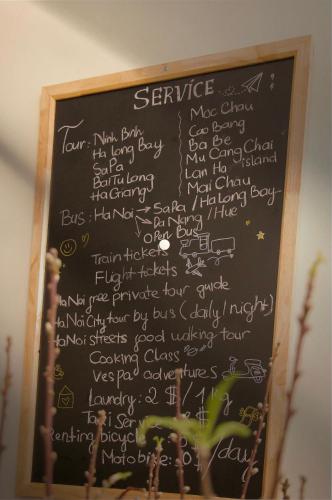 SERVICE
Tour: Ninh Binh
Ha Long Bay
SaPa
BaiTuLong
HaGiang
Moc Chau
Cao Bang
Ba Be
Mu Cang Chai
Lan Ha island
Mai Chau
Bus: HaNoi → SaPa / Ha Long Bay
→ Da Nang / Hue
Open Bus
Train tickets
Flight tickets
HaNoi free private tour guide
HaNoi City tour by bus (daily/night)
HaNoi streets good walking tour
Cooking Class
Vespa adventures
Laundry: 2 $ / 1 kg
Taxi Service $
Renting bicycle /day
Motobike: